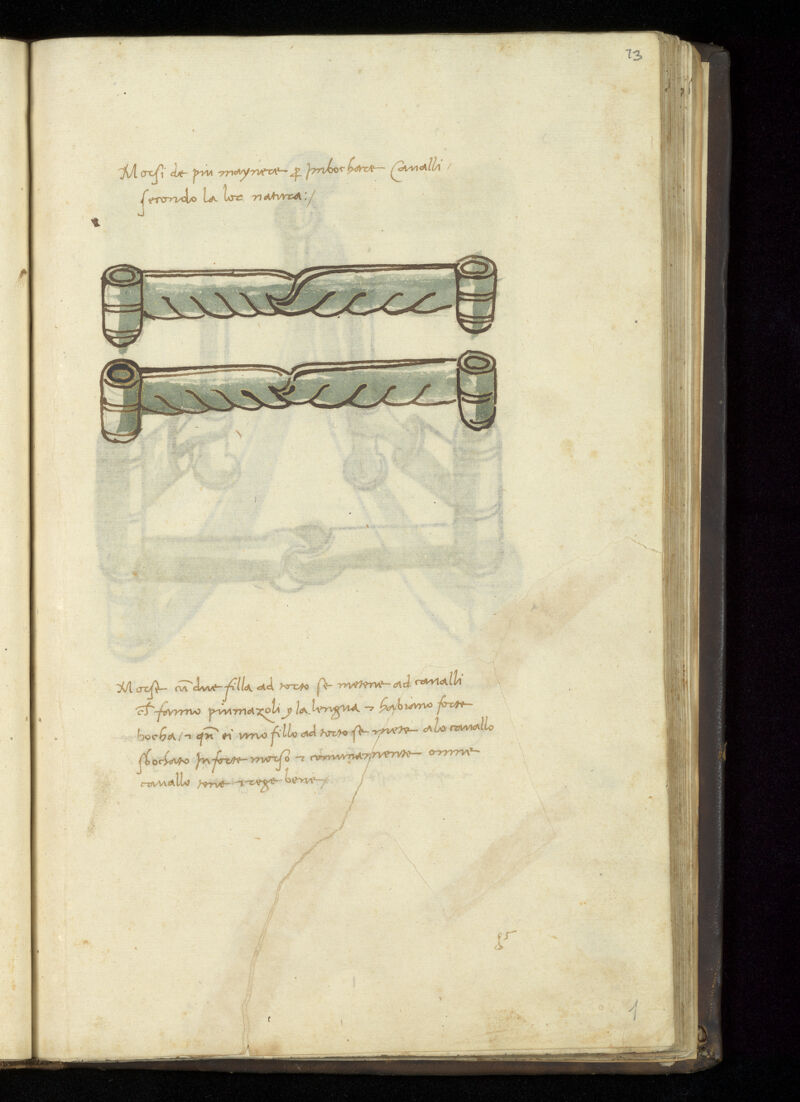 73
Morsi de piu maynere ꝑ Imbochare Cavalli /
secondo la lor natura:/
Morse cū due filla ad torto se metene ad cavalli
fanno piumazoli la lengua ⁊ habiano forte
bocha / ⁊ qn̄ ei uno fillo ad torto se mete alo cavallo
sbochato In forte morso ⁊ comunamente omne
cavallo tene ⁊ rege bene /
1